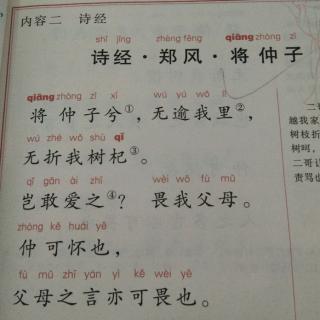 内容二 诗经
shī jīng zhèng fēng qiāng zhòng zǐ
诗经·郑风·将仲子
qiāng zhòng zǐ xī wú yú wǒ lǐ
将仲子兮①，无逾我里②，
wú zhé wǒ shù qǐ
无折我树杞③。
qǐ gǎn ài zhī wèi wǒ fù mǔ
岂敢爱之④？畏我父母。
zhòng kě huái yě
仲可怀也，
fù mǔ zhī yán yì kě wèi yě
父母之言亦可畏也。
二哥
越我家
树枝折
树呵，
二哥识
责骂也